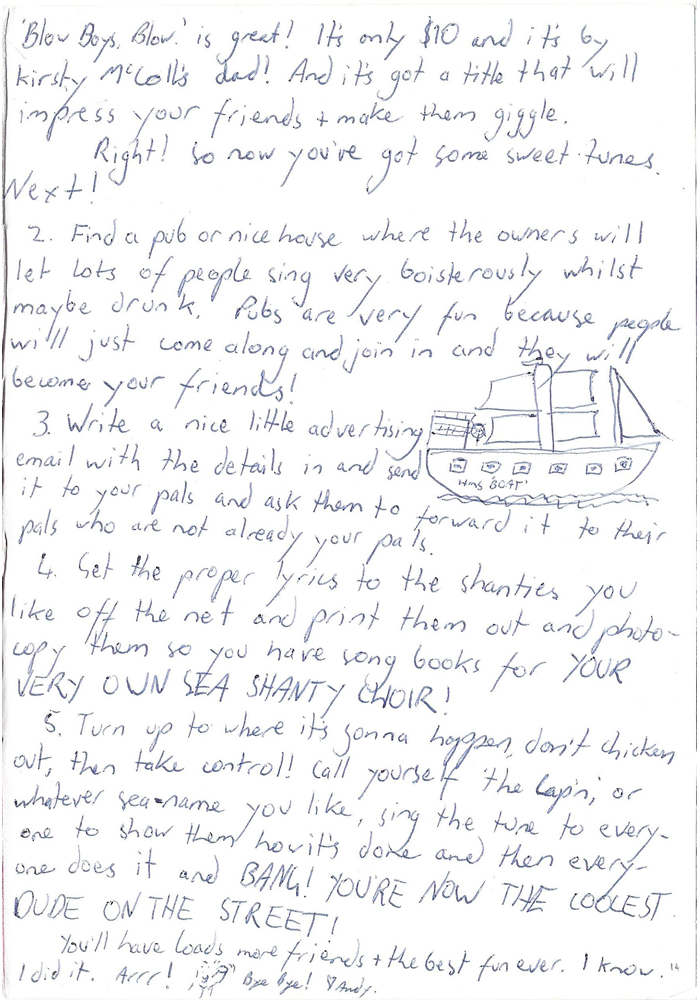 'Blow Boys, Blow.' is great! It's only $10 and it's by
kirsty McColl's dad! And it's got a title that will
impress your friends + make them giggle.
Right! So now you've got some sweet tunes.
Next!
2. Find a pub or nice house where the owners will
let lots of people sing very boisterously whilst
maybe drunk. Pubs are very fun because people
will just come along and join in and they will
become your friends!
3. Write a nice little advertising
email with the details in and send
it to your pals and ask them to forward it to their
pals who are not already your pals.
HMS 'BOAT'
4. Get the proper lyrics to the shanties you
like off the net and print them out and photo-
copy them so you have song books for YOUR
VERY OWN SEA SHANTY CHOIR!
5. Turn up to where it's gonna happen, don't chicken
out, then take control! Call yourself 'the Cap'n', or
whatever sea-name you like, sing the tune to every-
one to show them how it's done and then every-
one does it and BANG! YOU'RE NOW THE COOLEST
DUDE ON THE STREET!
You'll have loads more friends + the best fun ever. I know.
I did it. Arrr! Bye Bye! Andy.